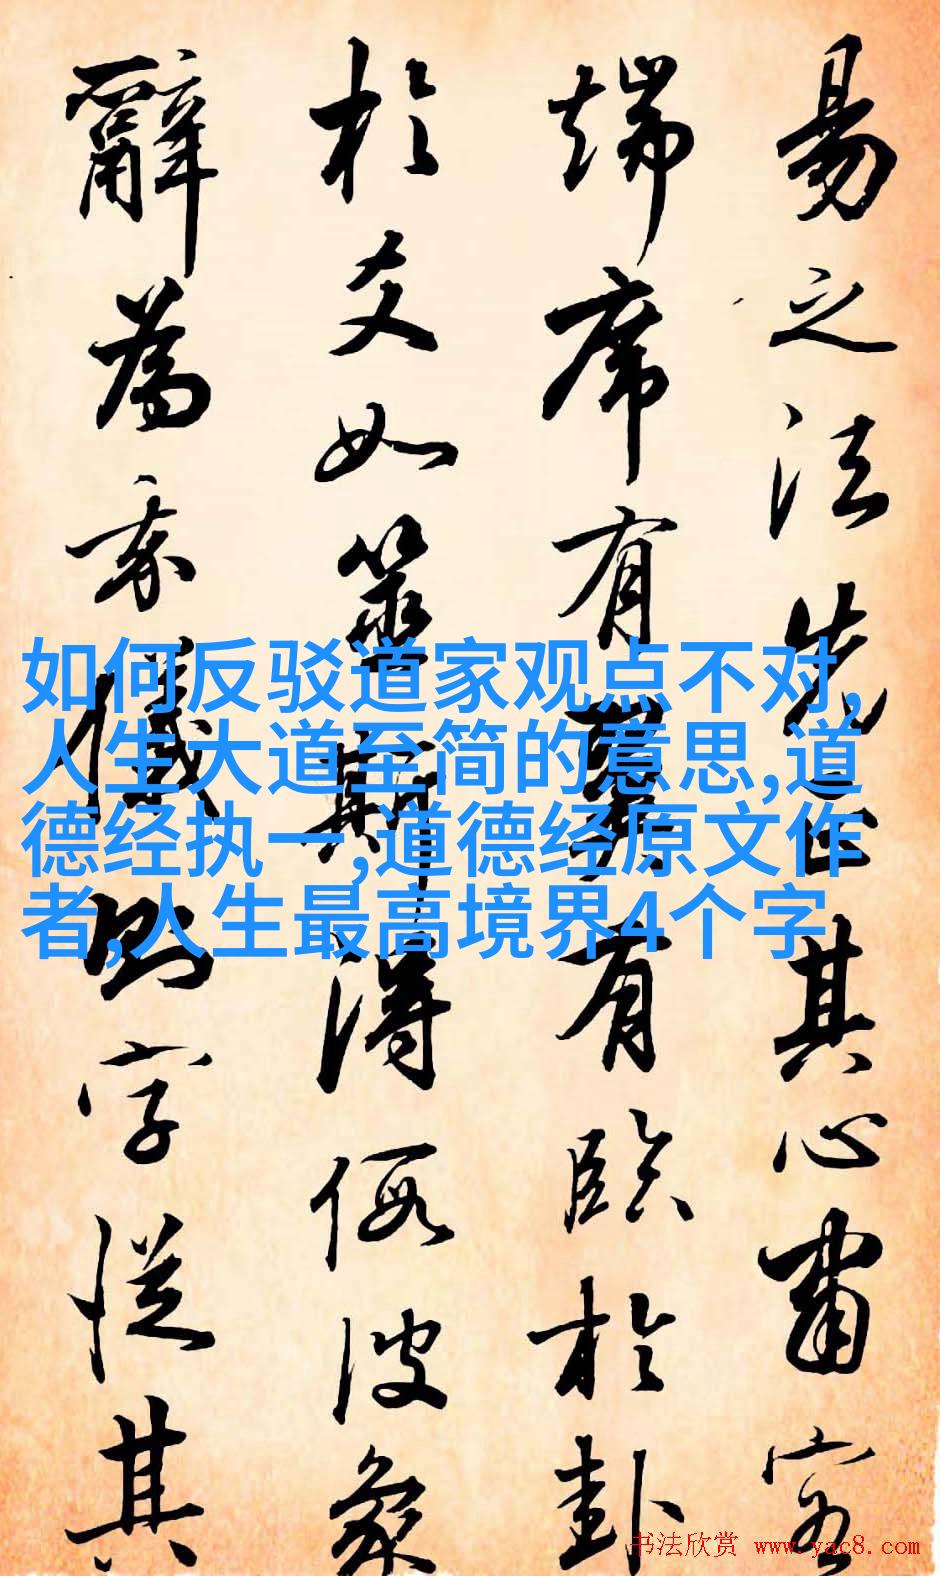 易之法先正其心肅容
端席有翼有臨於卦
於爻如筮斯得假彼象
辭為我儀則字從其
如何反驳道家观点不对,
人生大道至简的意思,道
德经执一,道德经原文作
者,人生最高境界4个字
书法欣赏 www.yac8.com